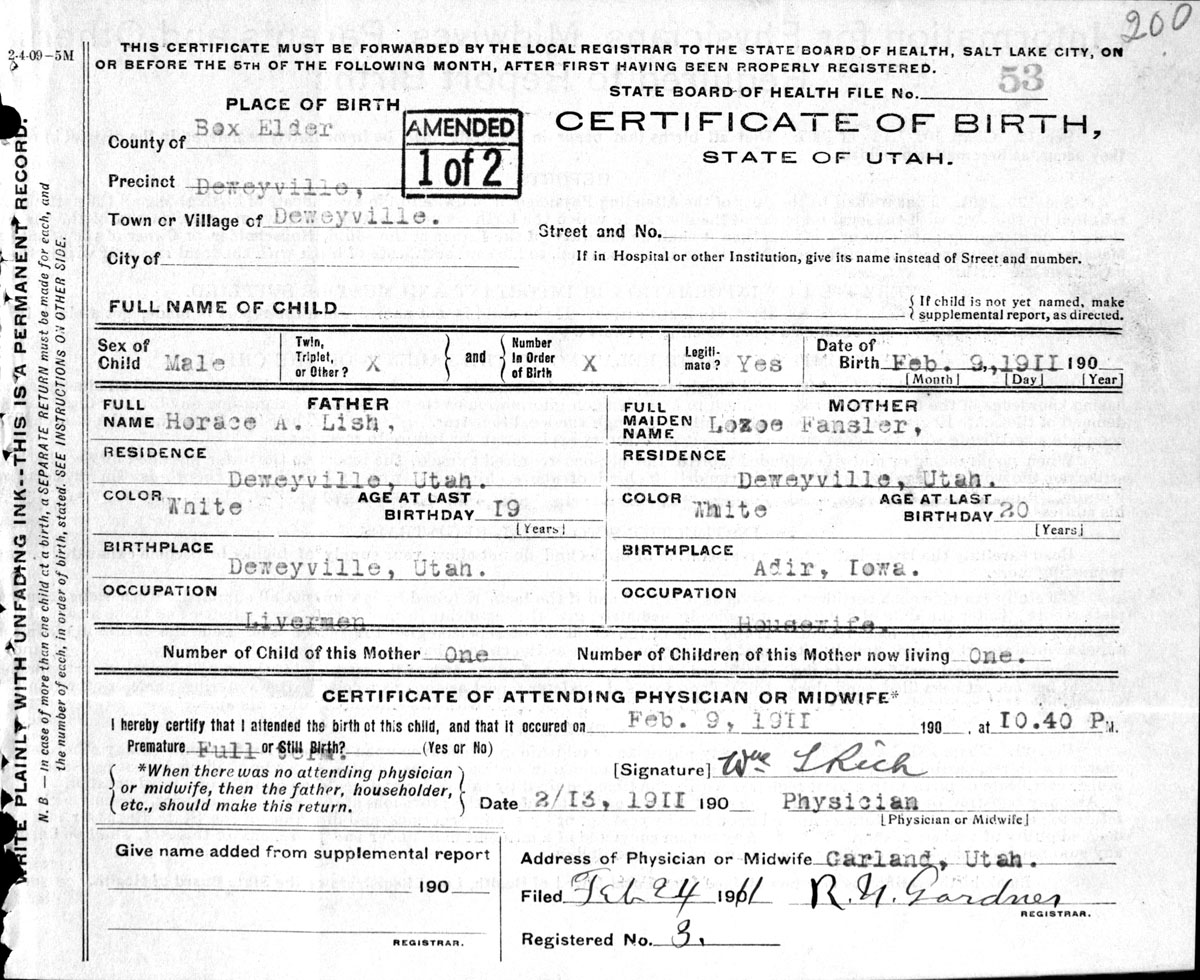 200
2-4-09—5M
THIS CERTIFICATE MUST BE FORWARDED BY THE LOCAL REGISTRAR TO THE STATE BOARD OF HEALTH, SALT LAKE CITY, ON
OR BEFORE THE 5TH OF THE FOLLOWING MONTH, AFTER FIRST HAVING BEEN PROPERLY REGISTERED.
STATE BOARD OF HEALTH FILE No. 53
PLACE OF BIRTH
AMENDED
1 of 2
CERTIFICATE OF BIRTH,
STATE OF UTAH.
County of Box Elder
Precinct Deweyville,
Town or Village of Deweyville.
Street and No.
City of
If in Hospital or other Institution, give its name instead of Street and number.
FULL NAME OF CHILD
{ If child is not yet named, make
supplemental report, as directed.
Sex of Child Male
Twin, Triplet, or Other? X
and
Number In Order of Birth X
Legiti-mate? Yes
Date of Birth Feb. 9,,1911 190
[Month] [Day] [Year]
FATHER
FULL NAME Horace A. Lish,
MOTHER
FULL MAIDEN NAME Lozoe Fansler,
RESIDENCE
Deweyville, Utah.
RESIDENCE
Deweyville, Utah.
COLOR White
AGE AT LAST BIRTHDAY 19
[Years]
COLOR White
AGE AT LAST BIRTHDAY 20
[Years]
BIRTHPLACE
Deweyville, Utah.
BIRTHPLACE
Adir, Iowa.
OCCUPATION
Livermen
OCCUPATION
Housewife.
Number of Child of this Mother One
Number of Children of this Mother now living One.
CERTIFICATE OF ATTENDING PHYSICIAN OR MIDWIFE*
I hereby certify that I attended the birth of this child, and that it occured on Feb. 9, 1911 190 , at 10.40 P.M.
Premature Full term. or Still Birth? (Yes or No)
*When there was no attending physician
or midwife, then the father, householder,
etc., should make this return.
[Signature] Wm L Rich
Date 2/13, 1911 190 Physician
[Physician or Midwife]
Give name added from supplemental report
190
REGISTRAR.
Address of Physician or Midwife Garland, Utah.
Filed Feb 24 1911 R. N. Gardner
REGISTRAR.
Registered No. 3.
WRITE PLAINLY WITH UNFADING INK--THIS IS A PERMANENT RECORD.
N. B.—In case of more than one child at a birth, a SEPARATE RETURN must be made for each, and
the number of each, in order of birth, stated. SEE INSTRUCTIONS ON OTHER SIDE.